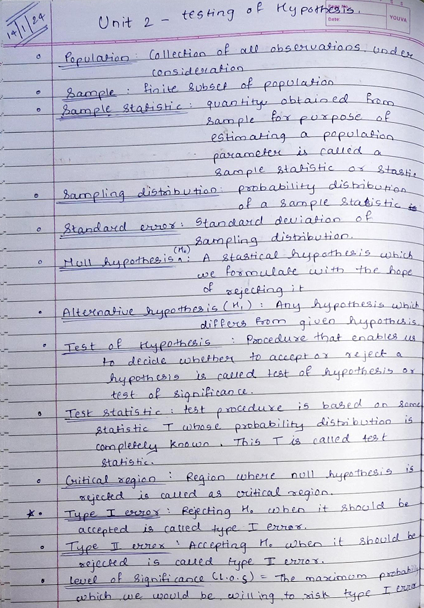 14/1/24
Unit 2 - testing of Hypothesis.
Date:
YOUVA
Population : Collection of all observations under
consideration
Sample : finite subset of population
Sample Statistic : quantity obtained from
sample for purpose of
estimating a population
parameter is called a
sample statistic or stasti
Sampling distribution : probability distribution
of a sample statistic
Standard error : Standard deviation of
sampling distribution.
Null hypothesis (H₀) : A stastical hypothesis which
we formulate with the hope
of rejecting it
Alternative hypothesis (H₁) : Any hypothesis which
differs from given hypothesis
Test of Hypothesis : Procedure that enables us
to decide whether to accept or reject a
hypothesis is called test of hypothesis or
test of significance.
Test statistic : test procedure is based on some
statistic T whose probability distribution is
completely known. This T is called test
statistic.
Critical region : Region where null hypothesis is
rejected is called as critical region.
Type I error : Rejecting H₀ when it should be
accepted is called type I error.
Type II error : Accepting H₀ when it should be
rejected is called type II error.
Level of Significance (L.O.S) = The maximum probabili
which we would be willing to risk type I error